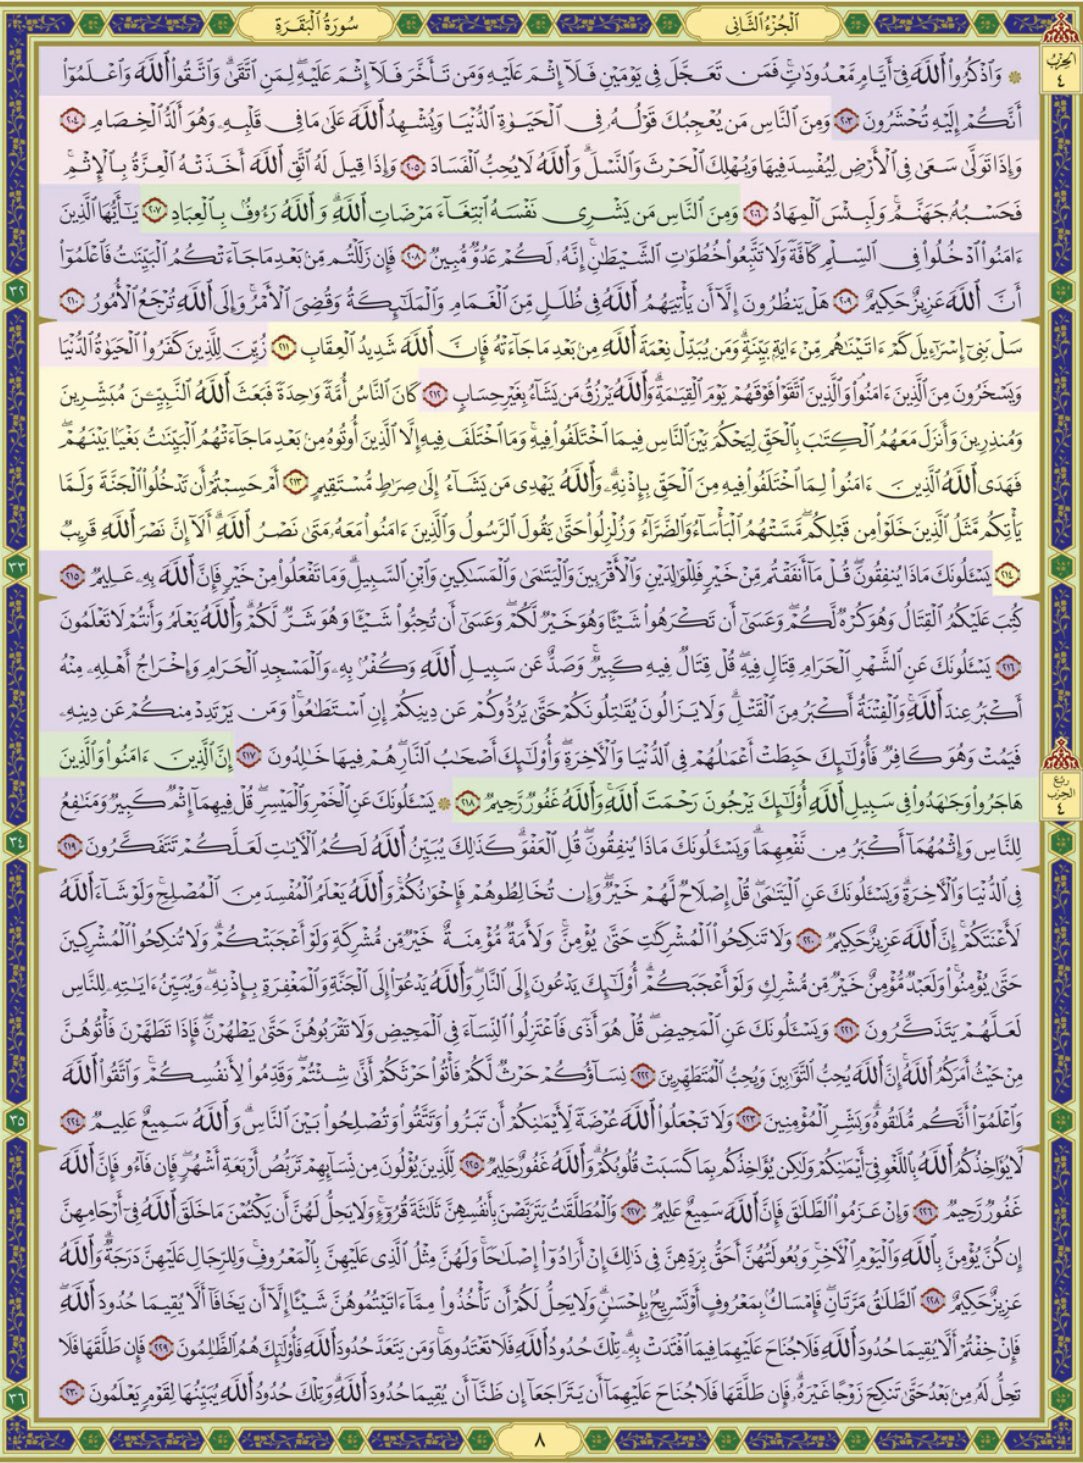 الجزء الثاني
سورة البقرة
الحزب
٤
۞ وَاذْكُرُوا اللَّهَ فِي أَيَّامٍ مَّعْدُودَاتٍ فَمَن تَعَجَّلَ فِي يَوْمَيْنِ فَلَا إِثْمَ عَلَيْهِ وَمَن تَأَخَّرَ فَلَا إِثْمَ عَلَيْهِ لِمَنِ اتَّقَىٰ وَاتَّقُوا اللَّهَ وَاعْلَمُوا
أَنَّكُمْ إِلَيْهِ تُحْشَرُونَ ٢٠٣ وَمِنَ النَّاسِ مَن يُعْجِبُكَ قَوْلُهُ فِي الْحَيَوٰةِ الدُّنْيَا وَيُشْهِدُ اللَّهَ عَلَىٰ مَا فِي قَلْبِهِ وَهُوَ أَلَدُّ الْخِصَامِ ٢٠٤
وَإِذَا تَوَلَّىٰ سَعَىٰ فِي الْأَرْضِ لِيُفْسِدَ فِيهَا وَيُهْلِكَ الْحَرْثَ وَالنَّسْلَ وَاللَّهُ لَا يُحِبُّ الْفَسَادَ ٢٠٥ وَإِذَا قِيلَ لَهُ اتَّقِ اللَّهَ أَخَذَتْهُ الْعِزَّةُ بِالْإِثْمِ
فَحَسْبُهُ جَهَنَّمُ وَلَبِئْسَ الْمِهَادُ ٢٠٦ وَمِنَ النَّاسِ مَن يَشْرِي نَفْسَهُ ابْتِغَاءَ مَرْضَاتِ اللَّهِ وَاللَّهُ رَءُوفٌ بِالْعِبَادِ ٢٠٧ يَٰأَيُّهَا الَّذِينَ
ءَامَنُوا ادْخُلُوا فِي السِّلْمِ كَافَّةً وَلَا تَتَّبِعُوا خُطُوَٰتِ الشَّيْطَٰنِ إِنَّهُ لَكُمْ عَدُوٌّ مُّبِينٌ ٢٠٨ فَإِن زَلَلْتُم مِّن بَعْدِ مَا جَاءَتْكُمُ الْبَيِّنَٰتُ فَاعْلَمُوا
أَنَّ اللَّهَ عَزِيزٌ حَكِيمٌ ٢٠٩ هَلْ يَنظُرُونَ إِلَّا أَن يَأْتِيَهُمُ اللَّهُ فِي ظُلَلٍ مِّنَ الْغَمَامِ وَالْمَلَٰئِكَةُ وَقُضِيَ الْأَمْرُ وَإِلَى اللَّهِ تُرْجَعُ الْأُمُورُ ٢١٠
سَلْ بَنِي إِسْرَٰءِيلَ كَمْ ءَاتَيْنَٰهُم مِّنْ ءَايَةٍ بَيِّنَةٍ وَمَن يُبَدِّلْ نِعْمَةَ اللَّهِ مِن بَعْدِ مَا جَاءَتْهُ فَإِنَّ اللَّهَ شَدِيدُ الْعِقَابِ ٢١١ زُيِّنَ لِلَّذِينَ كَفَرُوا الْحَيَوٰةُ الدُّنْيَا
وَيَسْخَرُونَ مِنَ الَّذِينَ ءَامَنُوا وَالَّذِينَ اتَّقَوْا فَوْقَهُمْ يَوْمَ الْقِيَٰمَةِ وَاللَّهُ يَرْزُقُ مَن يَشَاءُ بِغَيْرِ حِسَابٍ ٢١٢ كَانَ النَّاسُ أُمَّةً وَٰحِدَةً فَبَعَثَ اللَّهُ النَّبِيِّينَ مُبَشِّرِينَ
وَمُنذِرِينَ وَأَنزَلَ مَعَهُمُ الْكِتَٰبَ بِالْحَقِّ لِيَحْكُمَ بَيْنَ النَّاسِ فِيمَا اخْتَلَفُوا فِيهِ وَمَا اخْتَلَفَ فِيهِ إِلَّا الَّذِينَ أُوتُوهُ مِن بَعْدِ مَا جَاءَتْهُمُ الْبَيِّنَٰتُ بَغْيًا بَيْنَهُمْ
فَهَدَى اللَّهُ الَّذِينَ ءَامَنُوا لِمَا اخْتَلَفُوا فِيهِ مِنَ الْحَقِّ بِإِذْنِهِ وَاللَّهُ يَهْدِي مَن يَشَاءُ إِلَىٰ صِرَٰطٍ مُّسْتَقِيمٍ ٢١٣ أَمْ حَسِبْتُمْ أَن تَدْخُلُوا الْجَنَّةَ وَلَمَّا
يَأْتِكُم مَّثَلُ الَّذِينَ خَلَوْا مِن قَبْلِكُم مَّسَّتْهُمُ الْبَأْسَاءُ وَالضَّرَّاءُ وَزُلْزِلُوا حَتَّىٰ يَقُولَ الرَّسُولُ وَالَّذِينَ ءَامَنُوا مَعَهُ مَتَىٰ نَصْرُ اللَّهِ أَلَا إِنَّ نَصْرَ اللَّهِ قَرِيبٌ
٢١٤ يَسْـَٔلُونَكَ مَاذَا يُنفِقُونَ قُلْ مَا أَنفَقْتُم مِّنْ خَيْرٍ فَلِلْوَٰلِدَيْنِ وَالْأَقْرَبِينَ وَالْيَتَٰمَىٰ وَالْمَسَٰكِينِ وَابْنِ السَّبِيلِ وَمَا تَفْعَلُوا مِنْ خَيْرٍ فَإِنَّ اللَّهَ بِهِ عَلِيمٌ ٢١٥
كُتِبَ عَلَيْكُمُ الْقِتَالُ وَهُوَ كُرْهٌ لَّكُمْ وَعَسَىٰ أَن تَكْرَهُوا شَيْـًٔا وَهُوَ خَيْرٌ لَّكُمْ وَعَسَىٰ أَن تُحِبُّوا شَيْـًٔا وَهُوَ شَرٌّ لَّكُمْ وَاللَّهُ يَعْلَمُ وَأَنتُمْ لَا تَعْلَمُونَ
٢١٦ يَسْـَٔلُونَكَ عَنِ الشَّهْرِ الْحَرَامِ قِتَالٍ فِيهِ قُلْ قِتَالٌ فِيهِ كَبِيرٌ وَصَدٌّ عَن سَبِيلِ اللَّهِ وَكُفْرٌ بِهِ وَالْمَسْجِدِ الْحَرَامِ وَإِخْرَاجُ أَهْلِهِ مِنْهُ
أَكْبَرُ عِندَ اللَّهِ وَالْفِتْنَةُ أَكْبَرُ مِنَ الْقَتْلِ وَلَا يَزَالُونَ يُقَٰتِلُونَكُمْ حَتَّىٰ يَرُدُّوكُمْ عَن دِينِكُمْ إِنِ اسْتَطَٰعُوا وَمَن يَرْتَدِدْ مِنكُمْ عَن دِينِهِ
فَيَمُتْ وَهُوَ كَافِرٌ فَأُولَٰئِكَ حَبِطَتْ أَعْمَٰلُهُمْ فِي الدُّنْيَا وَالْءَاخِرَةِ وَأُولَٰئِكَ أَصْحَٰبُ النَّارِ هُمْ فِيهَا خَٰلِدُونَ ٢١٧ إِنَّ الَّذِينَ ءَامَنُوا وَالَّذِينَ
هَاجَرُوا وَجَٰهَدُوا فِي سَبِيلِ اللَّهِ أُولَٰئِكَ يَرْجُونَ رَحْمَتَ اللَّهِ وَاللَّهُ غَفُورٌ رَّحِيمٌ ٢١٨ ۞ يَسْـَٔلُونَكَ عَنِ الْخَمْرِ وَالْمَيْسِرِ قُلْ فِيهِمَا إِثْمٌ كَبِيرٌ وَمَنَٰفِعُ
لِلنَّاسِ وَإِثْمُهُمَا أَكْبَرُ مِن نَّفْعِهِمَا وَيَسْـَٔلُونَكَ مَاذَا يُنفِقُونَ قُلِ الْعَفْوَ كَذَٰلِكَ يُبَيِّنُ اللَّهُ لَكُمُ الْءَايَٰتِ لَعَلَّكُمْ تَتَفَكَّرُونَ ٢١٩
فِي الدُّنْيَا وَالْءَاخِرَةِ وَيَسْـَٔلُونَكَ عَنِ الْيَتَٰمَىٰ قُلْ إِصْلَاحٌ لَّهُمْ خَيْرٌ وَإِن تُخَالِطُوهُمْ فَإِخْوَٰنُكُمْ وَاللَّهُ يَعْلَمُ الْمُفْسِدَ مِنَ الْمُصْلِحِ وَلَوْ شَاءَ اللَّهُ
لَأَعْنَتَكُمْ إِنَّ اللَّهَ عَزِيزٌ حَكِيمٌ ٢٢٠ وَلَا تَنكِحُوا الْمُشْرِكَٰتِ حَتَّىٰ يُؤْمِنَّ وَلَأَمَةٌ مُّؤْمِنَةٌ خَيْرٌ مِّن مُّشْرِكَةٍ وَلَوْ أَعْجَبَتْكُمْ وَلَا تُنكِحُوا الْمُشْرِكِينَ
حَتَّىٰ يُؤْمِنُوا وَلَعَبْدٌ مُّؤْمِنٌ خَيْرٌ مِّن مُّشْرِكٍ وَلَوْ أَعْجَبَكُمْ أُولَٰئِكَ يَدْعُونَ إِلَى النَّارِ وَاللَّهُ يَدْعُوا إِلَى الْجَنَّةِ وَالْمَغْفِرَةِ بِإِذْنِهِ وَيُبَيِّنُ ءَايَٰتِهِ لِلنَّاسِ
لَعَلَّهُمْ يَتَذَكَّرُونَ ٢٢١ وَيَسْـَٔلُونَكَ عَنِ الْمَحِيضِ قُلْ هُوَ أَذًى فَاعْتَزِلُوا النِّسَاءَ فِي الْمَحِيضِ وَلَا تَقْرَبُوهُنَّ حَتَّىٰ يَطْهُرْنَ فَإِذَا تَطَهَّرْنَ فَأْتُوهُنَّ
مِنْ حَيْثُ أَمَرَكُمُ اللَّهُ إِنَّ اللَّهَ يُحِبُّ التَّوَّٰبِينَ وَيُحِبُّ الْمُتَطَهِّرِينَ ٢٢٢ نِسَاؤُكُمْ حَرْثٌ لَّكُمْ فَأْتُوا حَرْثَكُمْ أَنَّىٰ شِئْتُمْ وَقَدِّمُوا لِأَنفُسِكُمْ وَاتَّقُوا اللَّهَ
وَاعْلَمُوا أَنَّكُم مُّلَٰقُوهُ وَبَشِّرِ الْمُؤْمِنِينَ ٢٢٣ وَلَا تَجْعَلُوا اللَّهَ عُرْضَةً لِّأَيْمَٰنِكُمْ أَن تَبَرُّوا وَتَتَّقُوا وَتُصْلِحُوا بَيْنَ النَّاسِ وَاللَّهُ سَمِيعٌ عَلِيمٌ ٢٢٤
لَّا يُؤَاخِذُكُمُ اللَّهُ بِاللَّغْوِ فِي أَيْمَٰنِكُمْ وَلَٰكِن يُؤَاخِذُكُم بِمَا كَسَبَتْ قُلُوبُكُمْ وَاللَّهُ غَفُورٌ حَلِيمٌ ٢٢٥ لِّلَّذِينَ يُؤْلُونَ مِن نِّسَائِهِمْ تَرَبُّصُ أَرْبَعَةِ أَشْهُرٍ فَإِن فَاءُو فَإِنَّ اللَّهَ
غَفُورٌ رَّحِيمٌ ٢٢٦ وَإِنْ عَزَمُوا الطَّلَٰقَ فَإِنَّ اللَّهَ سَمِيعٌ عَلِيمٌ ٢٢٧ وَالْمُطَلَّقَٰتُ يَتَرَبَّصْنَ بِأَنفُسِهِنَّ ثَلَٰثَةَ قُرُوءٍ وَلَا يَحِلُّ لَهُنَّ أَن يَكْتُمْنَ مَا خَلَقَ اللَّهُ فِي أَرْحَامِهِنَّ
إِن كُنَّ يُؤْمِنَّ بِاللَّهِ وَالْيَوْمِ الْءَاخِرِ وَبُعُولَتُهُنَّ أَحَقُّ بِرَدِّهِنَّ فِي ذَٰلِكَ إِنْ أَرَادُوا إِصْلَٰحًا وَلَهُنَّ مِثْلُ الَّذِي عَلَيْهِنَّ بِالْمَعْرُوفِ وَلِلرِّجَالِ عَلَيْهِنَّ دَرَجَةٌ وَاللَّهُ
عَزِيزٌ حَكِيمٌ ٢٢٨ الطَّلَٰقُ مَرَّتَانِ فَإِمْسَاكٌ بِمَعْرُوفٍ أَوْ تَسْرِيحٌ بِإِحْسَٰنٍ وَلَا يَحِلُّ لَكُمْ أَن تَأْخُذُوا مِمَّا ءَاتَيْتُمُوهُنَّ شَيْـًٔا إِلَّا أَن يَخَافَا أَلَّا يُقِيمَا حُدُودَ اللَّهِ
فَإِنْ خِفْتُمْ أَلَّا يُقِيمَا حُدُودَ اللَّهِ فَلَا جُنَاحَ عَلَيْهِمَا فِيمَا افْتَدَتْ بِهِ تِلْكَ حُدُودُ اللَّهِ فَلَا تَعْتَدُوهَا وَمَن يَتَعَدَّ حُدُودَ اللَّهِ فَأُولَٰئِكَ هُمُ الظَّٰلِمُونَ ٢٢٩ فَإِن طَلَّقَهَا فَلَا
تَحِلُّ لَهُ مِن بَعْدُ حَتَّىٰ تَنكِحَ زَوْجًا غَيْرَهُ فَإِن طَلَّقَهَا فَلَا جُنَاحَ عَلَيْهِمَا أَن يَتَرَاجَعَا إِن ظَنَّا أَن يُقِيمَا حُدُودَ اللَّهِ وَتِلْكَ حُدُودُ اللَّهِ يُبَيِّنُهَا لِقَوْمٍ يَعْلَمُونَ ٢٣٠
ربع
الحزب
٤
٣٢
٣٣
٣٤
٣٥
٣٦
٨